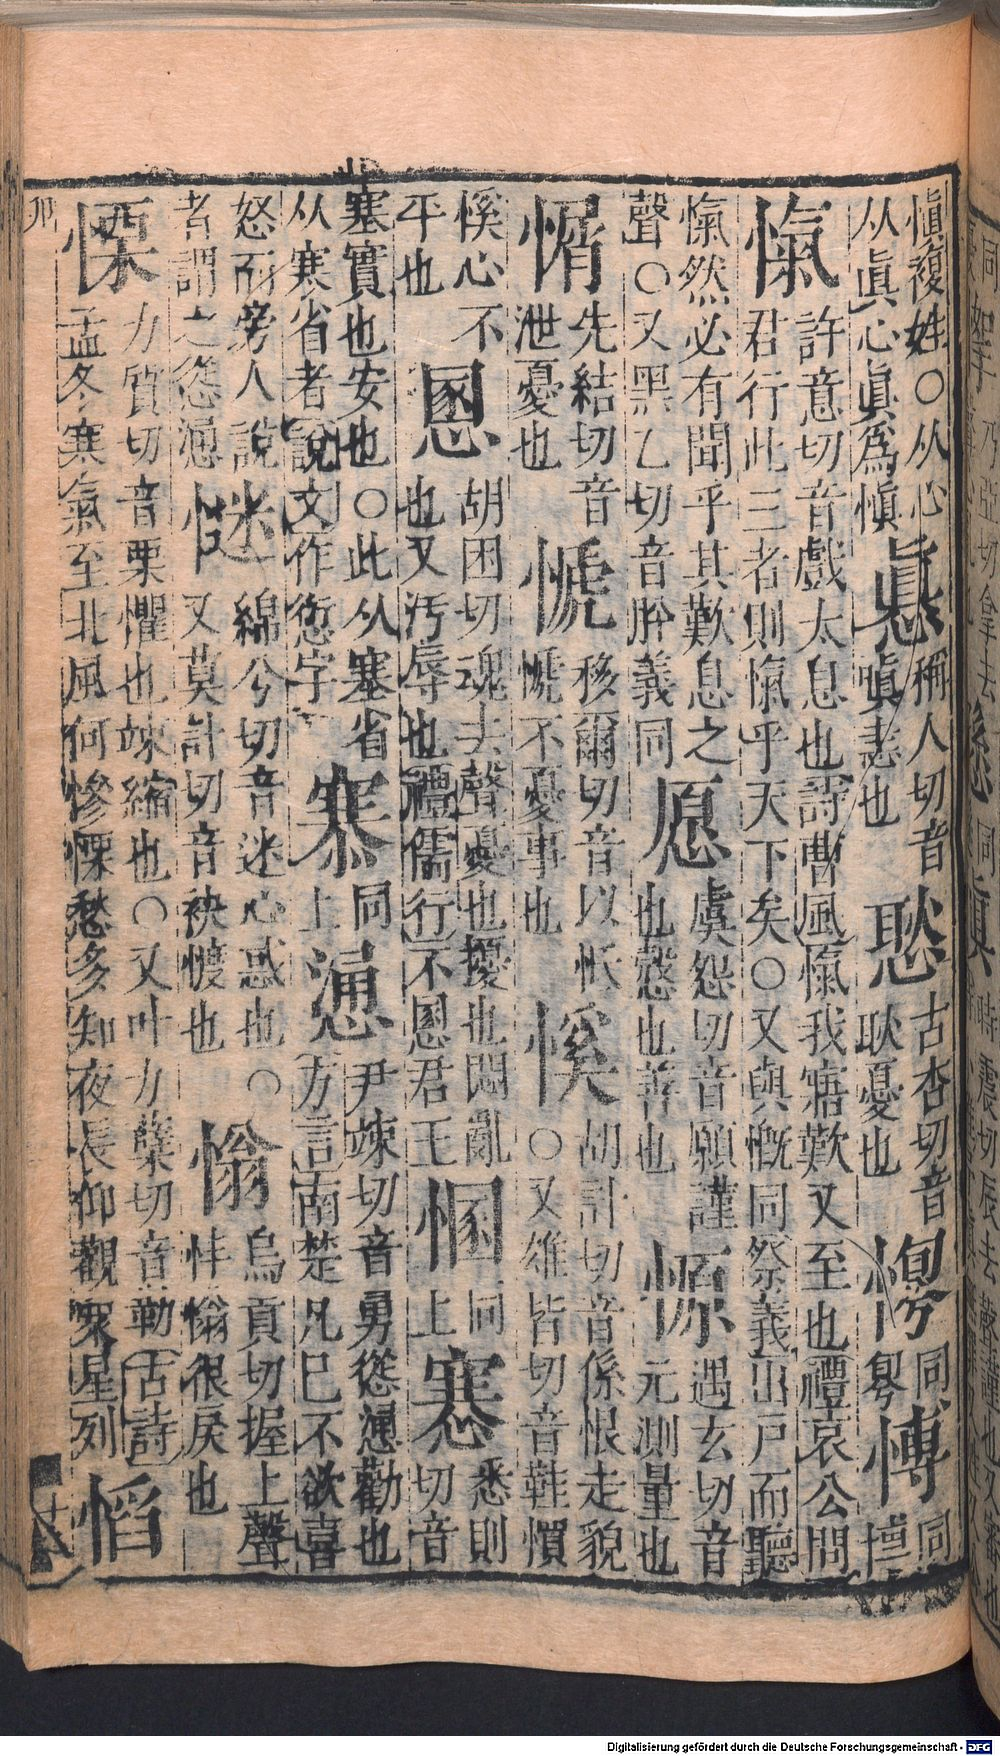 愼複姓○从心
从眞心眞爲愼
稱人切音
嗔恚也
古杏切音
耿憂也
同
同
愾
許意切音戲太息也詩曹風愾我寤歎又至也禮哀公問
君行此三者則愾乎天下矣○又與慨同祭義出戸而聽
愾然必有聞乎其歎息之
聲○又黑乙切音肸義同
愿
虞怨切音願謹
也慤也善也
遇玄切音
元測量也
先結切音
泄憂也
移爾切音以
不憂事也
慀
胡計切音係恨走貌
○又雄皆切音鞋慣
慀心不
平也
慁
胡困切魂去聲憂也擾也悶亂
也又汚辱也禮儒行不慁君王
同
上
悉則
切音
塞實也安也○此从塞省
从寒省者說文作愆字
同
上
慂
尹竦切音勇慫慂勸也
方言南楚凡巳不欲喜
怒而旁人說
者謂之慫慂
綿兮切音迷心惑也○
又莫計切音袂懱也
烏貢切握上聲
很戾也
慄
力質切音栗懼也竦縮也○又叶力蘖切音勒古詩
孟冬寒氣至北風何慘慄愁多知夜長仰觀衆星列
慆
卯
Digitalisierung gefördert durch die Deutsche Forschungsgemeinschaft - DFG